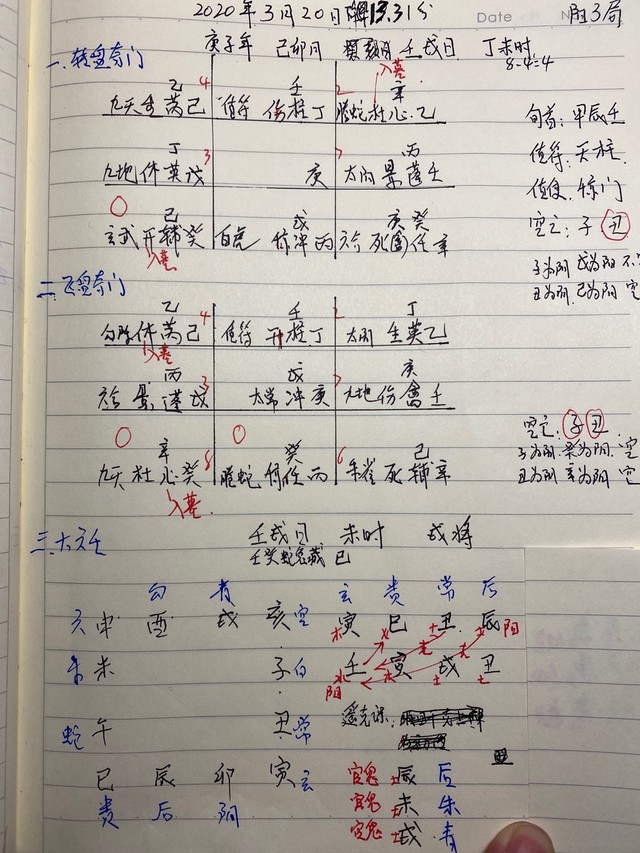 2020年3月20日 13.31分
Date
阳3局
庚子年 己卯月 壬戌日 丁未时
8-4=4
一.转盘奇门
入墓
乙 4 壬 2 辛
九天 生 芮 己 值符 伤 柱 丁 螣蛇 杜 心 乙
旬首:甲辰壬
丁 3 7 丙
九地 休 英 戊 庚 太阴 景 蓬 壬
值符:天柱
值使:惊门
己 戊 庚癸
玄武 开 辅 癸 白虎 惊 冲 丙 六合 死 禽任 辛
空亡:子丑
入墓
子为阴 戊为阳 不
丑为阴.己为阴 空
二.飞盘奇门
乙 4 壬 2 丁
勾陈 休 芮 己 值符 开 柱 丁 太阴 生 英 乙
入墓
丙 3 戊 7 庚
六合 景 蓬 戊 太常 冲 庚 九地 伤 禽 壬
空亡:子丑
辛 8 癸 6 己
九天 杜 心 癸 螣蛇 惊 任 丙 朱雀 死 辅 辛
子为阴.癸为阴.空
丑为阴 辛为阴 空
入墓
三.六壬
壬戌日 未时 戌将
壬癸蛇兔藏 巳
勾 青 玄 贵 常 后
六 申 酉 戌 亥 空 寅 巳 丑 辰 阴
朱 未 子 白 壬 寅 戌 丑
蛇 午 丑 常 遥克课
巳 辰 卯 寅 玄 官鬼 土 辰 后
贵 后 阴 官鬼 土 未 朱
官鬼 土 戌 青